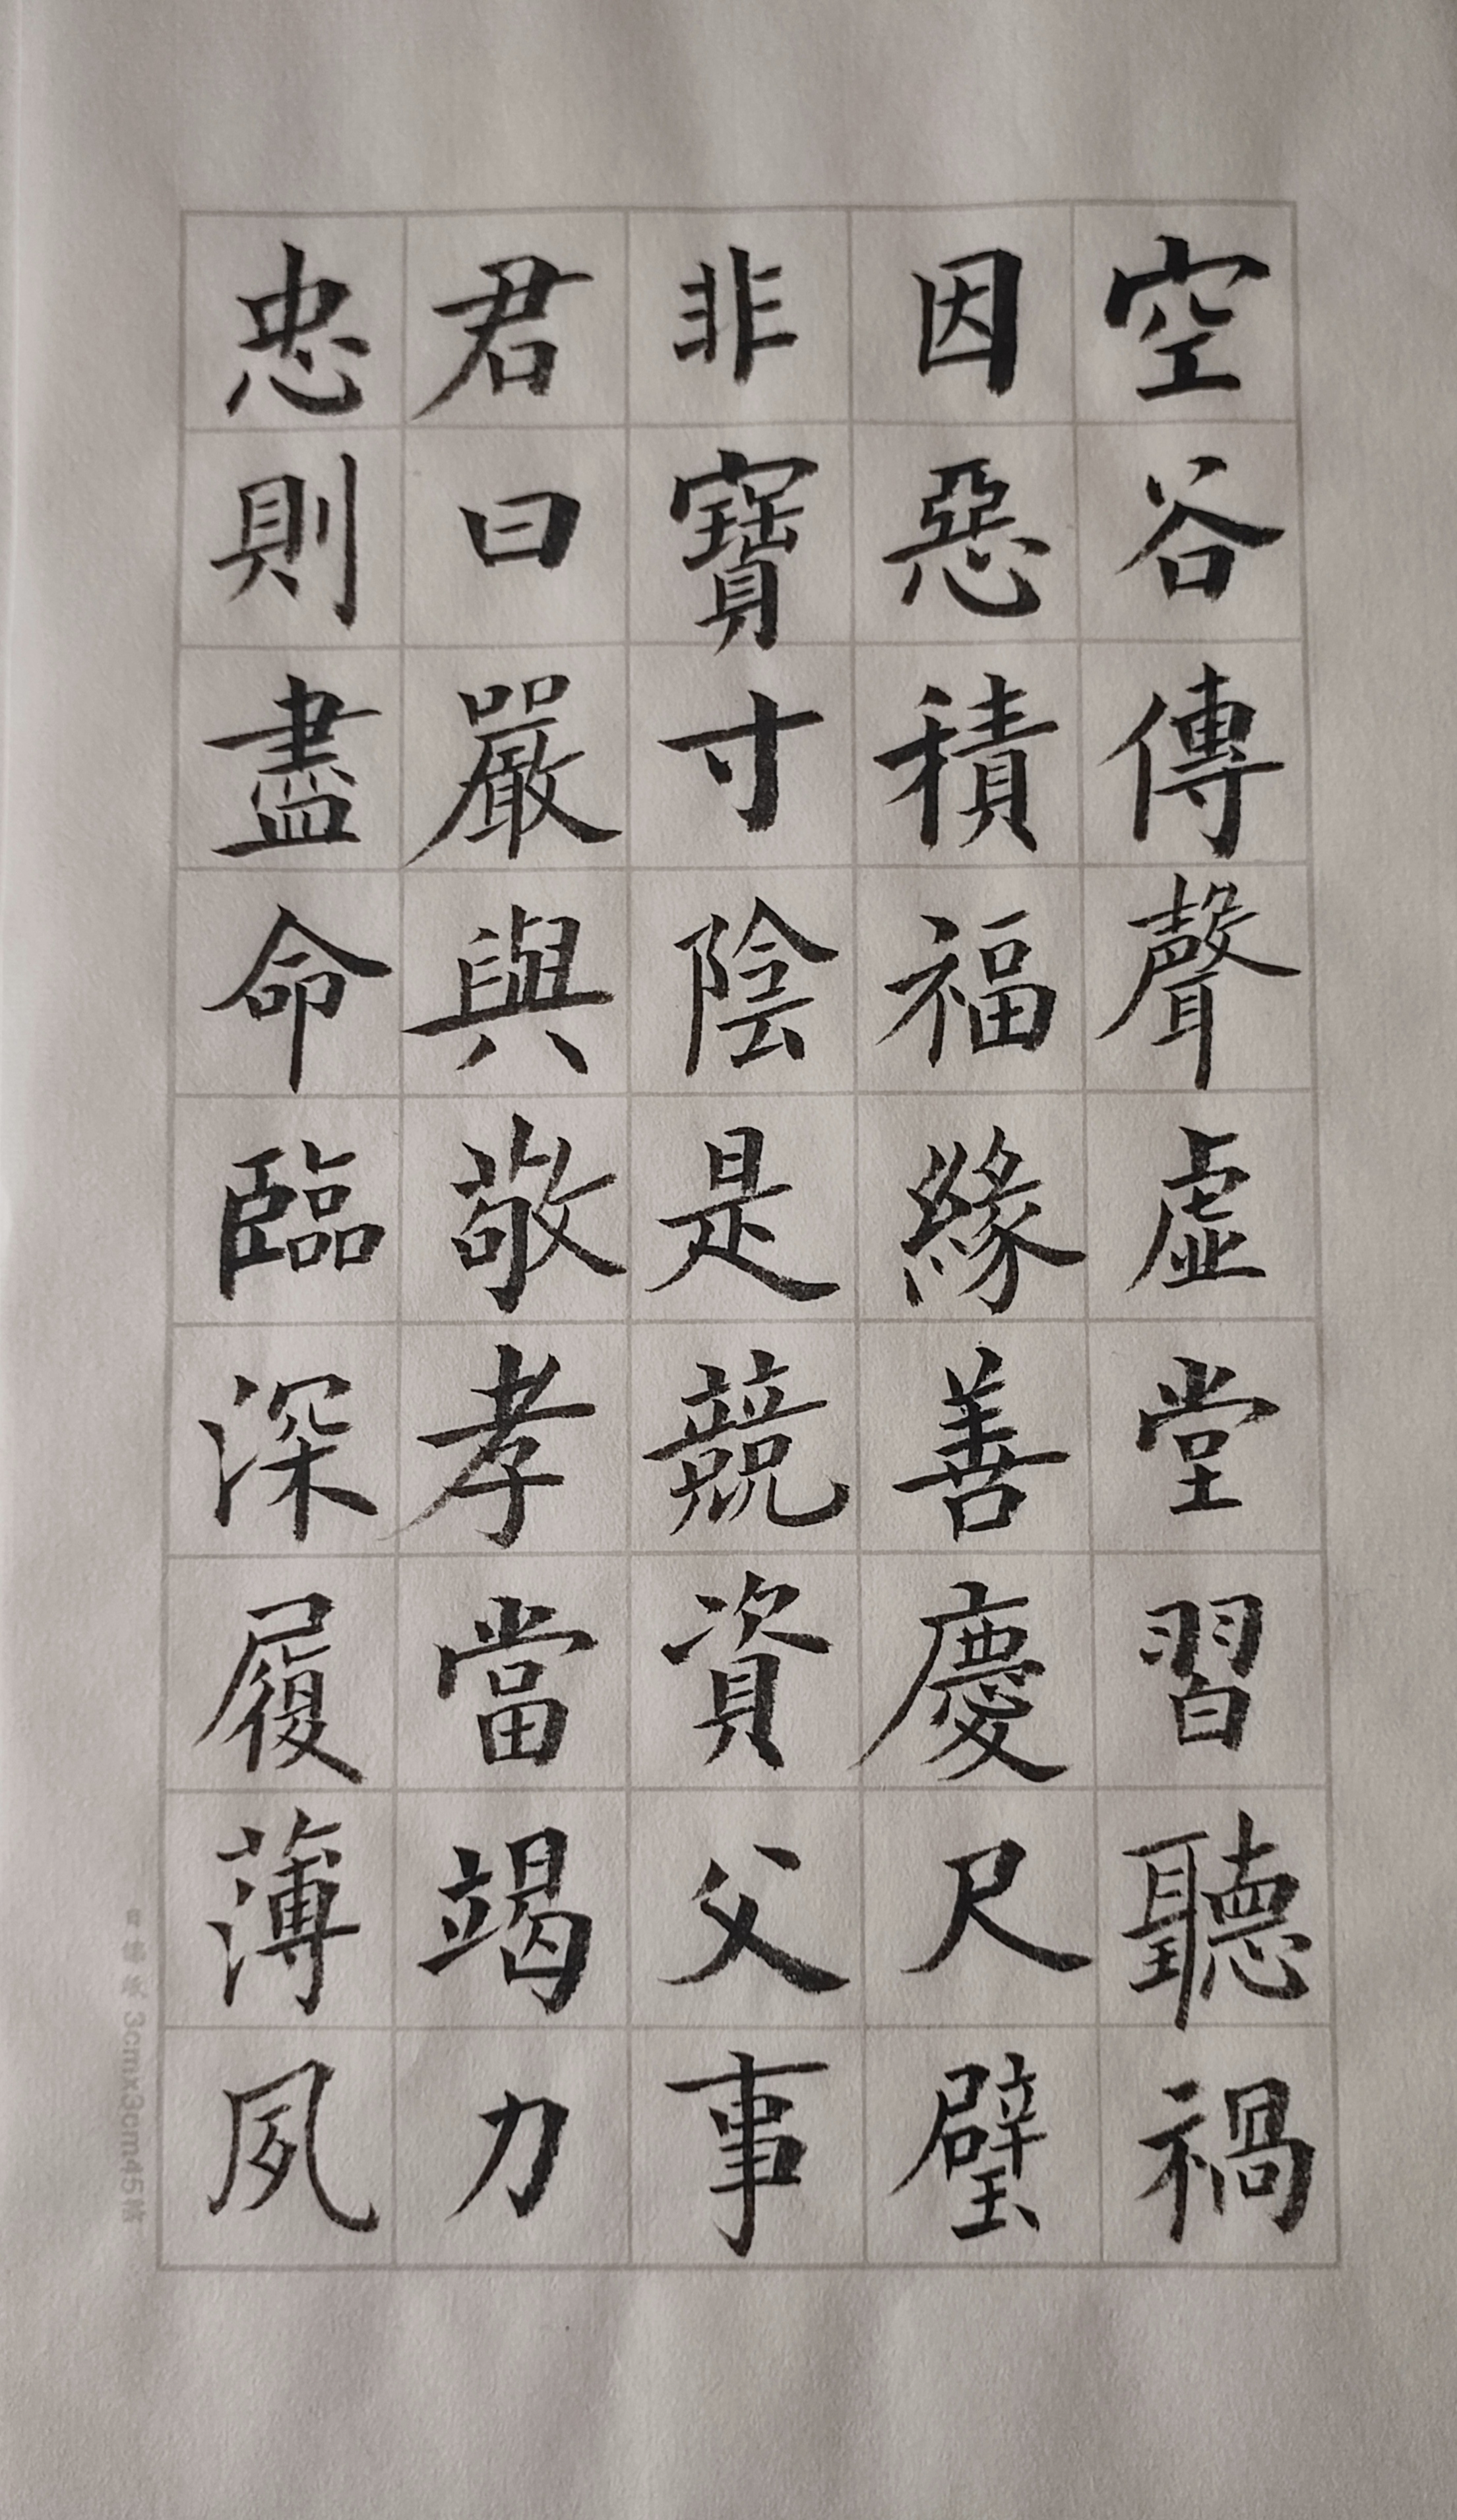 空谷傳聲虛堂習聽禍
因惡積福緣善慶尺璧
非寶寸陰是競資父事
君曰嚴與敬孝當竭力
忠則盡命臨深履薄夙
3cmx3cm45格